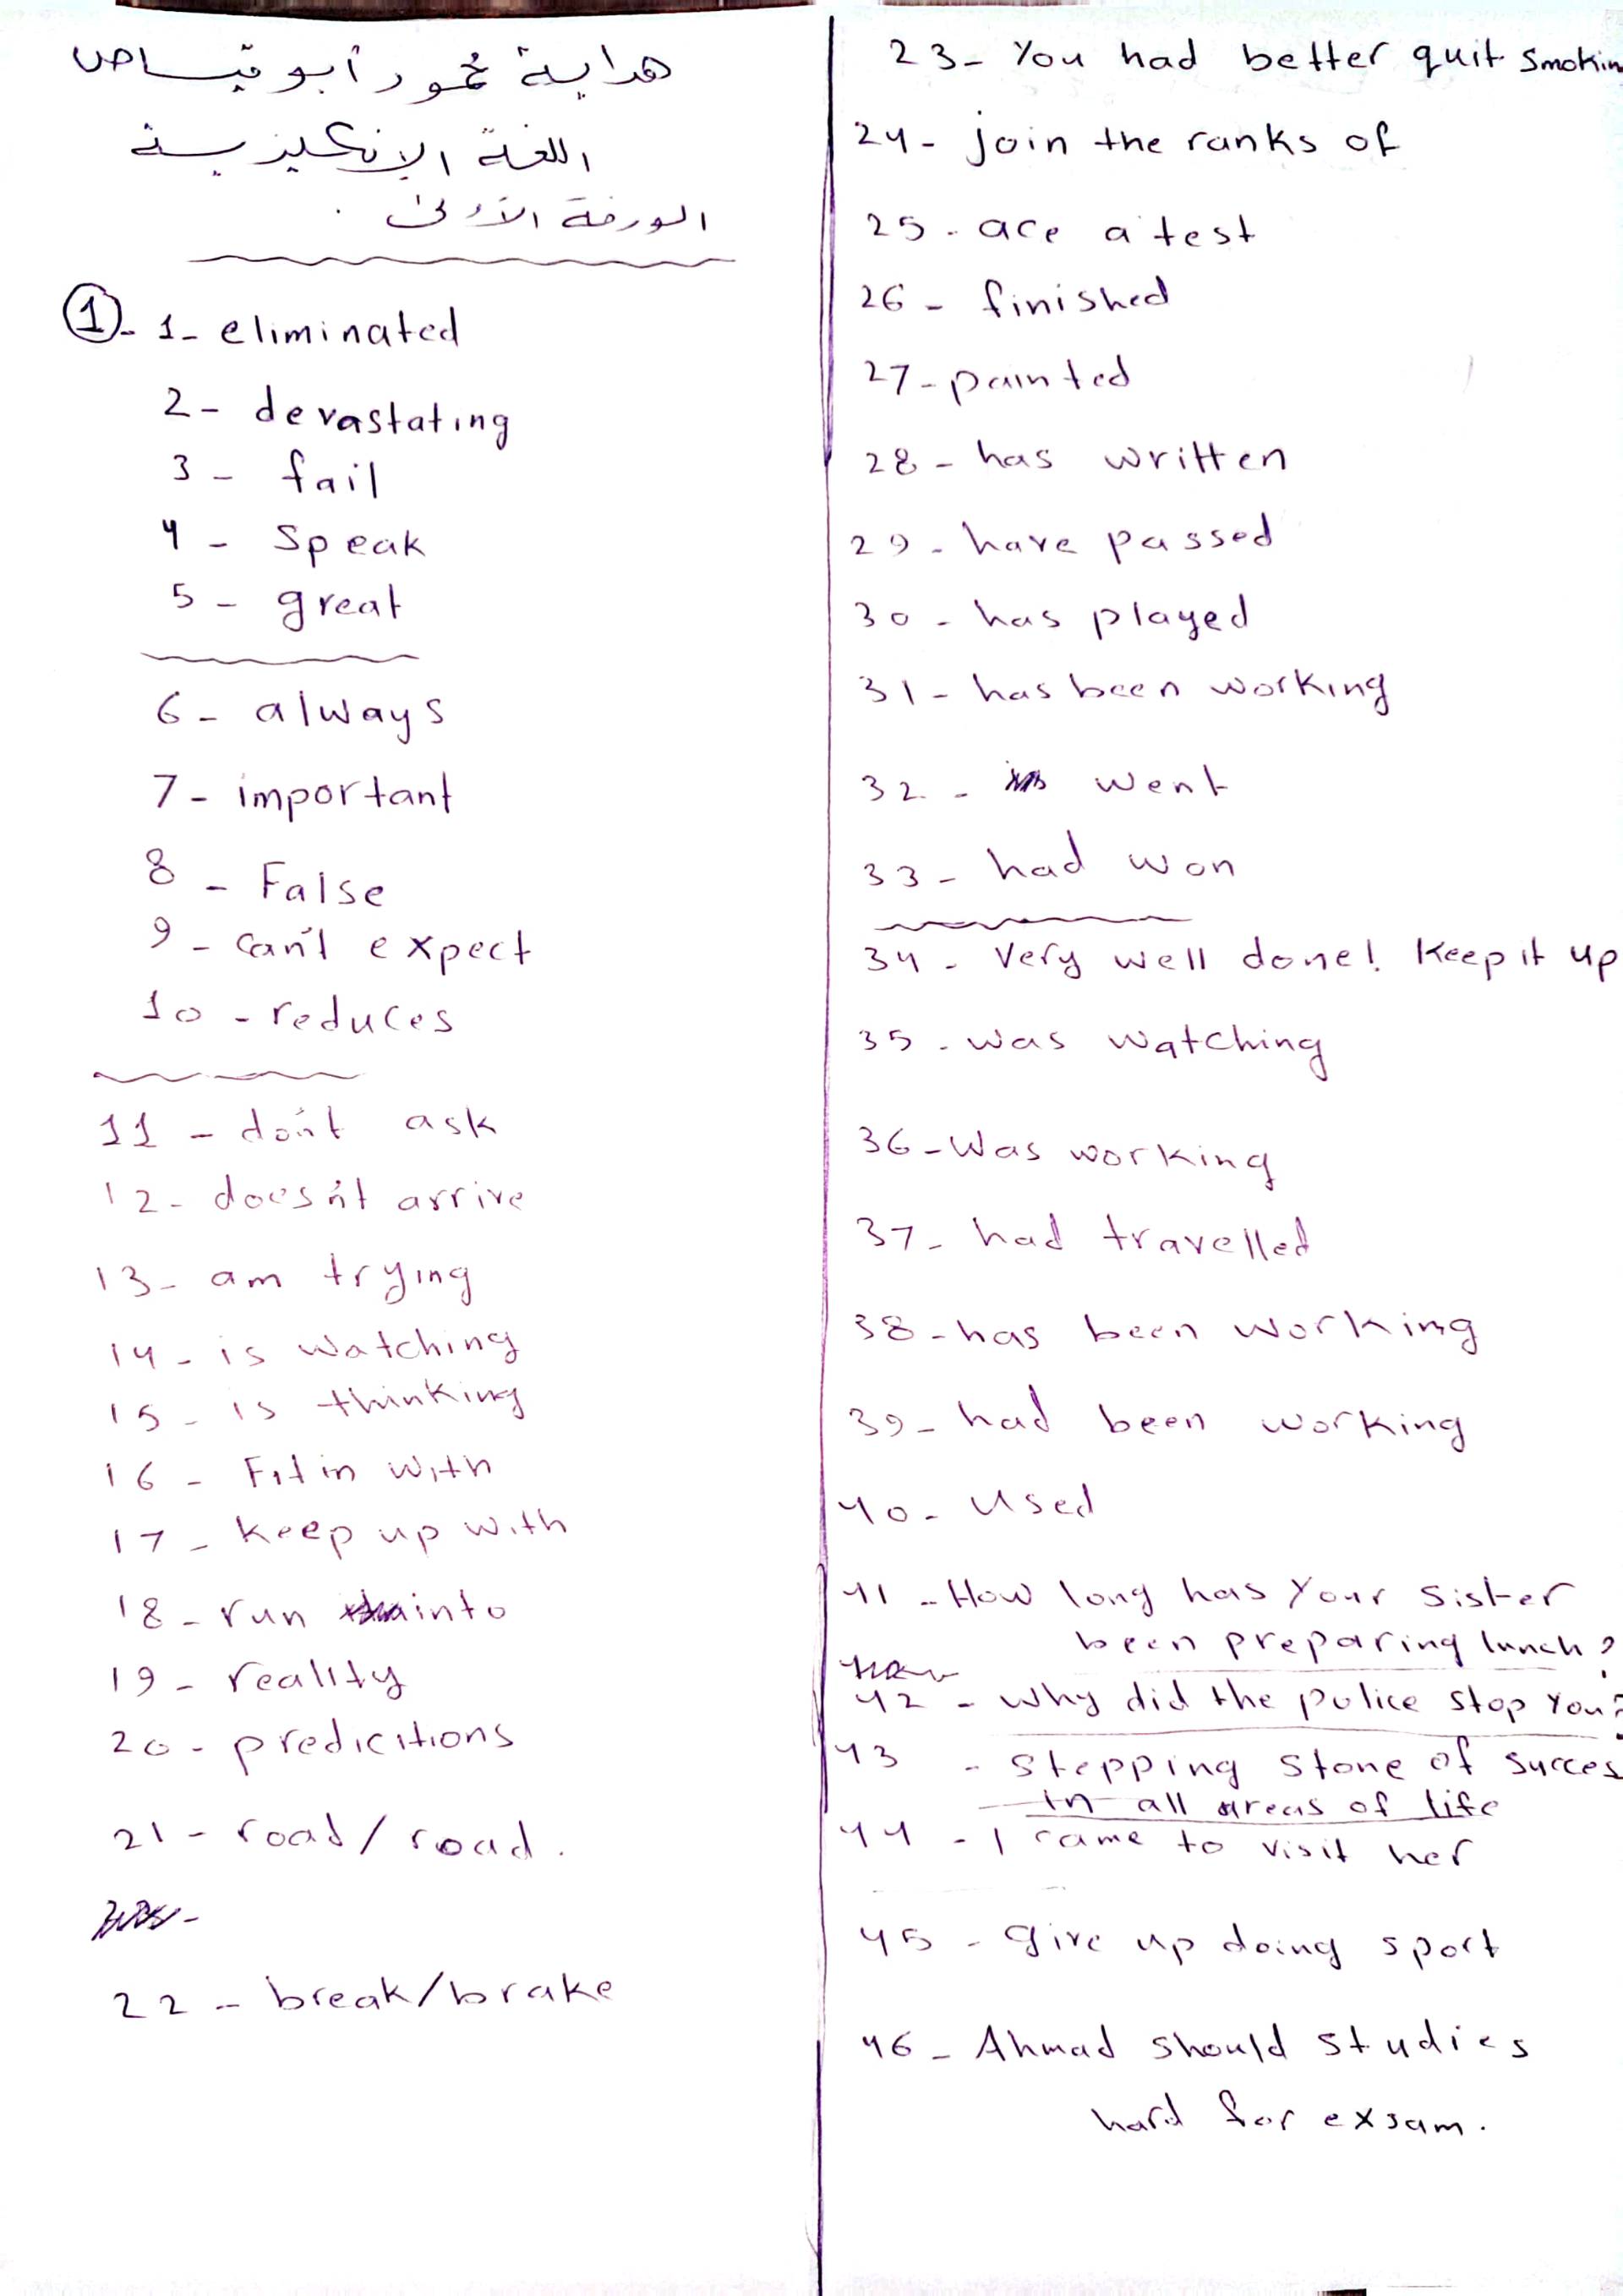 هداية محمود أبو قياص
اللغة الإنكليزية
الورقة الأولى .
1 - 1 - eliminated
2 - devastating
3 - fail
4 - Speak
5 - great
6 - always
7 - important
8 - False
9 - can't expect
10 - reduces
11 - don't ask
12 - doesn't arrive
13 - am trying
14 - is watching
15 - is thinking
16 - Fit in with
17 - Keep up with
18 - run into
19 - reality
20 - predicitions
21 - road / road .
22 - break/brake
23 - You had better quit Smokin
24 - join the ranks of
25 - ace a test
26 - finished
27 - painted
28 - has written
29 - have passed
30 - has played
31 - has been working
32 - went
33 - had won
34 - Very well done! Keep it up
35 - was watching
36 - Was working
37 - had travelled
38 - has been working
39 - had been working
40 - Used
41 - How long has Your Sister
been preparing lunch?
42 - Why did the police stop You?
43 - stepping stone of succes
in all areas of life
44 - I came to visit her
45 - give up doing sport
46 - Ahmad should studies
hard for exsam.